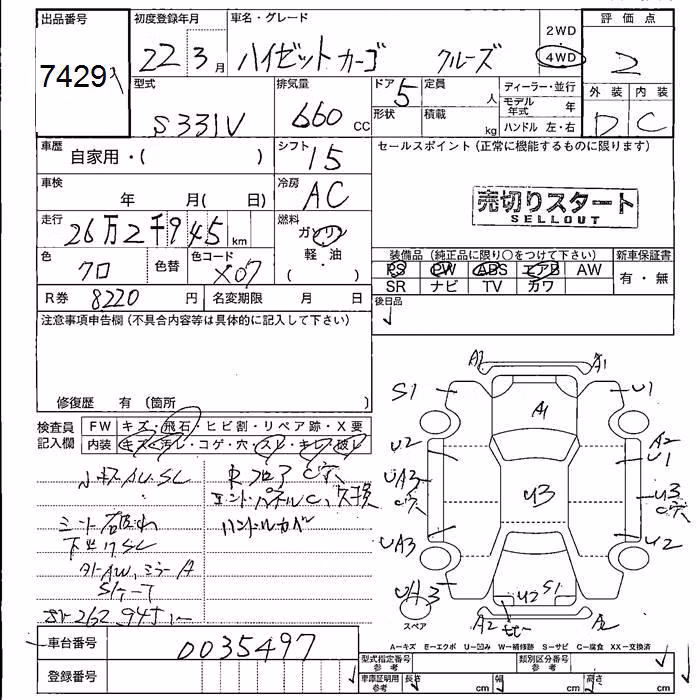 出品番号
7429
初度登録年月
22 3 月
車名・グレード
ハイゼットカーゴ クルーズ
2WD
4WD
評価点
2
型式
S331V
排気量
660 CC
ドア 5
形状
定員 人
積載 kg
ディーラー・並行
モデル年式 年
ハンドル 左・右
外装 内装
D C
車歴
自家用・( )
シフト
I5
セールスポイント (正常に機能するものに限ります)
車検
年 月( 日)
冷房
AC
売切りスタート
SELLOUT
走行
26万2千945 km
燃料
ガソリン
軽・油
( )
色
クロ
色替
色コード
X07
装備品 (純正品に限り○をつけて下さい)
新車保証書
PS PW ABS エアB AW
SR ナビ TV カワ
有・無
R券 8220 円
名変期限 月 日
後日品
注意事項申告欄 (不具合内容等は具体的に記入して下さい)
修復歴 有 (箇所 )
検査員記入欄
FW キズ・飛石・ヒビ割・リペア跡・X要
内装 キズ・汚レ・コゲ・穴・スレ・キレ・破レ
小キズAU.SL
シート破れ
下廻りSL
R フロア C穴
エンドパネルC、
ハンドルカバー
A2 A1
S1 U1
A1
U2 A2
U1
UA3
C穴
U3
U3
C穴
UA3 U2
UA3
U2 S1
A2
A2
スペア
A-キズ E-エクボ U-凹み W-補修跡 S-サビ C-腐食 XX-交換済
車台番号
0035497
登録番号
型式指定番号
参考
類別区分番号
参考
車庫証明用
参考
長さ cm
幅 cm
高さ cm